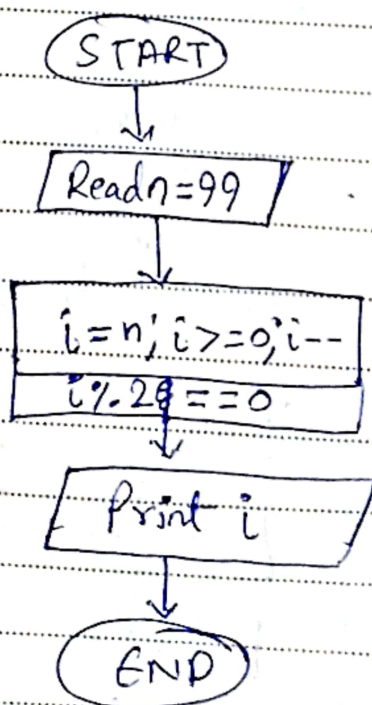 START
Readn=99
i=n; i>=0; i--
i%2==0
Print i
END